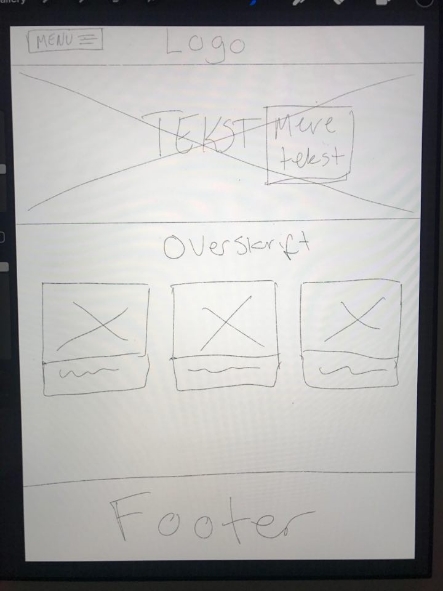 MENU
Logo
TEKST
Mere
tekst
Overskrift
Footer